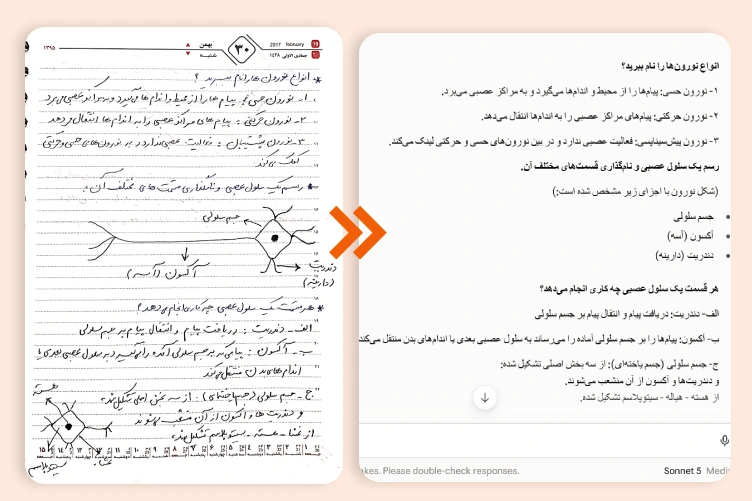 2017 february
۱۸
جمادی الاولی ۱۴۳۸
۳۰
بهمن
شنبه
۱۳۹۵
* انواع نورون ها را نام ببرید ؟
۱- نورون حسی : پیام ها را از محیط و اندام ها می‌گیرد و به مراکز عصبی می‌برد
۲- نورون حرکتی : پیام های مراکز عصبی را به اندام ها انتقال می‌دهد
۳- نورون پشتیبان : فعالیت عصبی ندارد و به نورون های حسی و حرکتی
کمک می‌کند
* رسم یک سلول عصبی و نامگذاری قسمت های مختلف آن :
جسم سلولی
آکسون (آسه)
دندریت
(دارینه)
* هر قسمت یک سلول عصبی چه کاری انجام می‌دهد ؟
الف - دندریت : دریافت پیام و انتقال پیام به جسم سلولی
ب - آکسون : پیامی که به جسم سلولی آمده را می‌گیرد به سلول عصبی بعدی یا
اندام های بدن منتقل می‌کند
ج - جسم سلولی (جسم یاخته‌ای) : از سه بخش اصلی تشکیل شده
و دندریت ها و آکسون از آن منشعب می‌شوند
از غشا - هسته - سیتوپلاسم تشکیل شده
هسته
غشا
سیتوپلاسم
انواع نورون‌ها را نام ببرید؟
۱- نورون حسی: پیام‌ها را از محیط و اندام‌ها می‌گیرد و به مراکز عصبی می‌برد.
۲- نورون حرکتی: پیام‌های مراکز عصبی را به اندام‌ها انتقال می‌دهد.
۳- نورون پیش‌سیناپسی: فعالیت عصبی ندارد و در بین نورون‌های حسی و حرکتی لینک می‌کند.
رسم یک سلول عصبی و نام‌گذاری قسمت‌های مختلف آن.
(شکل نورون با اجزای زیر مشخص شده است:)
جسم سلولی
آکسون (آسه)
دندریت (دارینه)
هر قسمت یک سلول عصبی چه کاری انجام می‌دهد؟
الف- دندریت: دریافت پیام و انتقال پیام بر جسم سلولی
ب- آکسون: پیام‌ها را بر جسم سلولی آماده را می‌رساند به سلول عصبی بعدی یا اندام‌های بدن منتقل می‌کند
ج- جسم سلولی (جسم یاخته‌ای): از سه بخش اصلی تشکیل شده:
و دندریت‌ها و آکسون از آن منشعب می‌شوند.
از هسته - هیاله - سیتوپلاسم تشکیل شده.
akes. Please double-check responses.
Sonnet 5 Medi